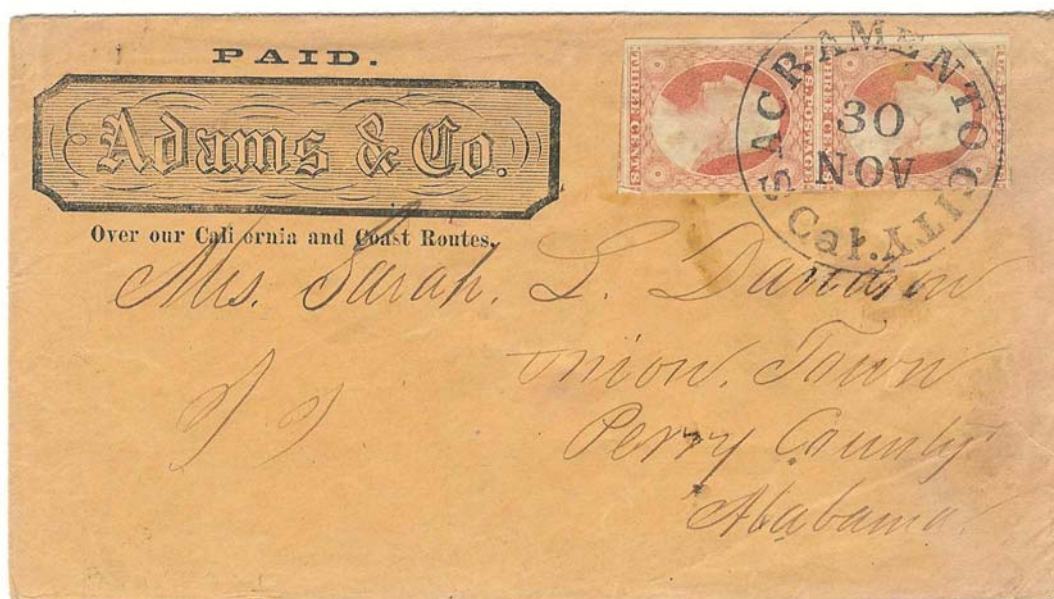 PAID.
Adams & Co.
Over our Cali ornia and Coast Routes.
U.S. POSTAGE
THREE CENTS
U.S. POSTAGE
THREE CENTS
SACRAMENTO CITY
30
NOV
Cal.
Mrs. Sarah. L. Davidson
Union. Town
Perry County
Alabama